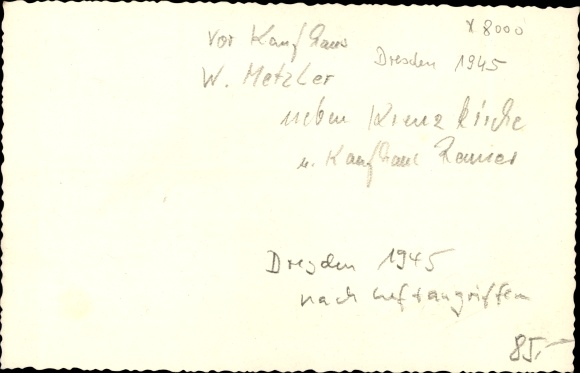 x 8000
vor Kaufhaus
Dresden 1945
W. Metzler
neben Kreuzkirche
u. Kaufhaus
Dresden 1945
nach Luftangriffen
85,-